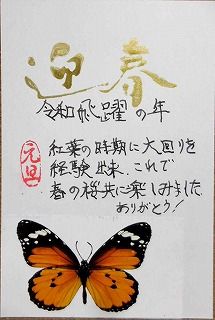 迎春
令和飛躍の年
元旦
紅葉の時期に大回りを
経験出来、これで
春の桜共に楽しみました。
ありがとう!